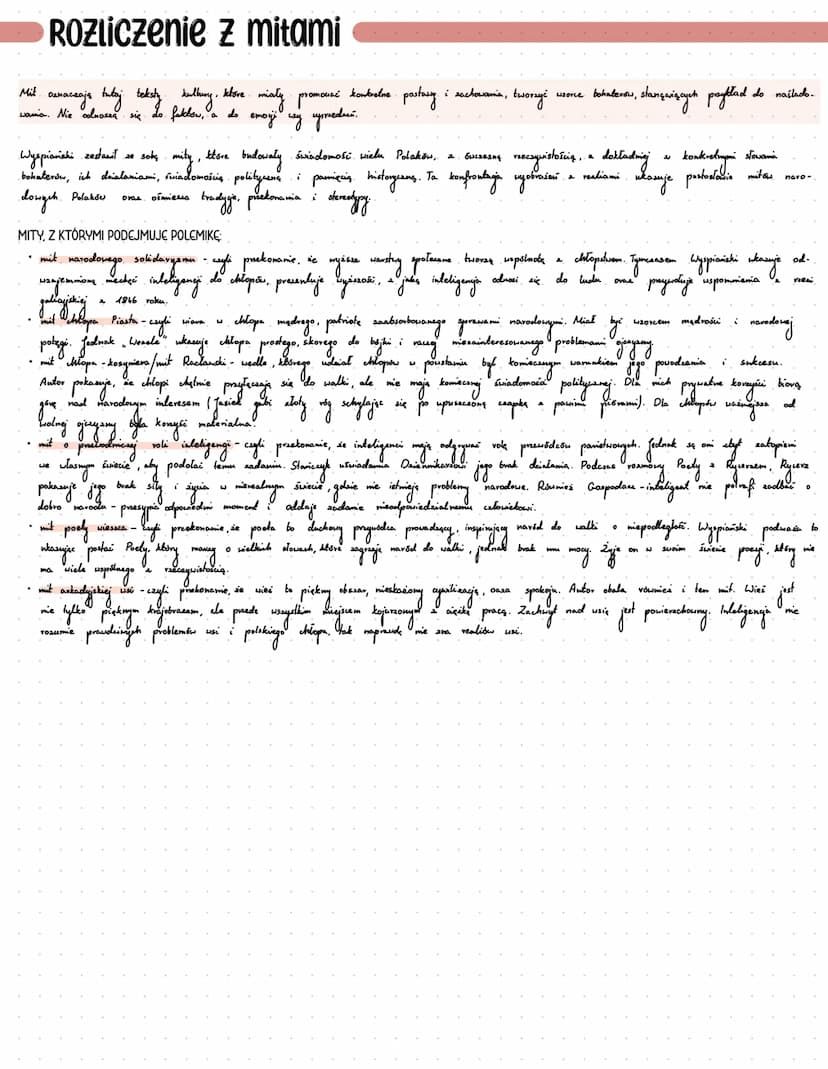 ROZLICZENIE Z MITAMI
Mit oznaczają tutaj teksty kultury, które miały promować konkretne postawy i zachowania, tworzyć wzorce bohaterów, stanowiących przykład do naślado-
wania. Nie odnoszą się do faktów, a do emocji czy uprzedzeń.
Wyspiański zestawił ze sobą mity, które budowały świadomość wielu Polaków, z ówczesną rzeczywistością, a dokładniej z konkretnymi słowami
bohaterów, ich działaniami, świadomością polityczną i pamięcią historyczną. Ta konfrontacja wyobrażeń z realiami ukazuje pustosłowie mitów naro-
dowych Polaków oraz ośmiesza tradycje, przekonania i stereotypy.
MITY, Z KTÓRYMI PODEJMUJE POLEMIKĘ:
• mit narodowego solidaryzmu - czyli przekonanie, że wyższe warstwy społeczne tworzą wspólnotę z chłopstwem. Tymczasem Wyspiański ukazuje od-
wzajemnioną niechęć inteligencji do chłopów, prezentuje wyższość, z jaką inteligencja odnosi się do ludu oraz przywołuje wspomnienia z rzezi
galicyjskiej z 1846 roku.
• mit chłopa Piasta - czyli wiara w chłopa mądrego, patriotę zaabsorbowanego sprawami narodowymi. Miał być wzorcem mądrości i narodowej
potęgi. Jednak „Wesele" ukazuje chłopa prostego, skorego do bójki i raczej niezainteresowanego problemami ojczyzny.
• mit chłopa-kosyniera/mit Racławicki - wedle, którego udział chłopów w powstaniu był koniecznym warunkiem jego powodzenia i sukcesu.
Autor pokazuje, że chłopi chętnie przyłączają się do walki, ale nie mają koniecznej świadomości politycznej. Dla nich prywatne korzyści biorą
górę nad narodowym interesem (Jasiek gubi złoty róg schylając się po upuszczoną czapkę z pawimi piórami). Dla chłopów ważniejsza od
wolnej ojczyzny była korzyść materialna.
• mit o przywódczej roli inteligencji - czyli przekonanie, że inteligenci mają odgrywać rolę przewódców państwowych. Jednak są oni zbyt zatopieni
we własnym świecie, aby podołać temu zadaniu. Stańczyk uświadamia Dziennikarzowi jego brak działania. Podczas rozmowy Poety z Rycerzem, Rycerz
pokazuje jego brak siły i życia w nierealnym świecie, gdzie nie istnieją problemy narodowe. Również Gospodarz-inteligent nie potrafi zadbać o
dobro narodu - przesypia odpowiedni moment i oddaje zadanie nieodpowiedzialnemu człowiekowi.
• mit poety wieszcza - czyli przekonanie, że poeta to duchowy przywódca prowadzący, inspirujący naród do walki o niepodległość. Wyspiański podważa to
ukazując postać Poety, który marzy o wielkich słowach, które zagrzeją naród do walki, jednak brak mu mocy. Żyje on w swoim świecie poezji, który nie
ma wiele wspólnego z rzeczywistością.
• mit arkadyjskiej wsi - czyli przekonanie, że wieś to piękny obszar, nieskażony cywilizacją, oaza spokoju. Autor obala również i ten mit. Wieś jest
nie tylko pięknym krajobrazem, ale przede wszystkim miejscem kojarzonym z ciężką pracą. Zachwyt nad wsią jest powierzchowny. Inteligencja nie
rozumie prawdziwych problemów wsi i polskiego chłopa, tak naprawdę nie zna realiów wsi.